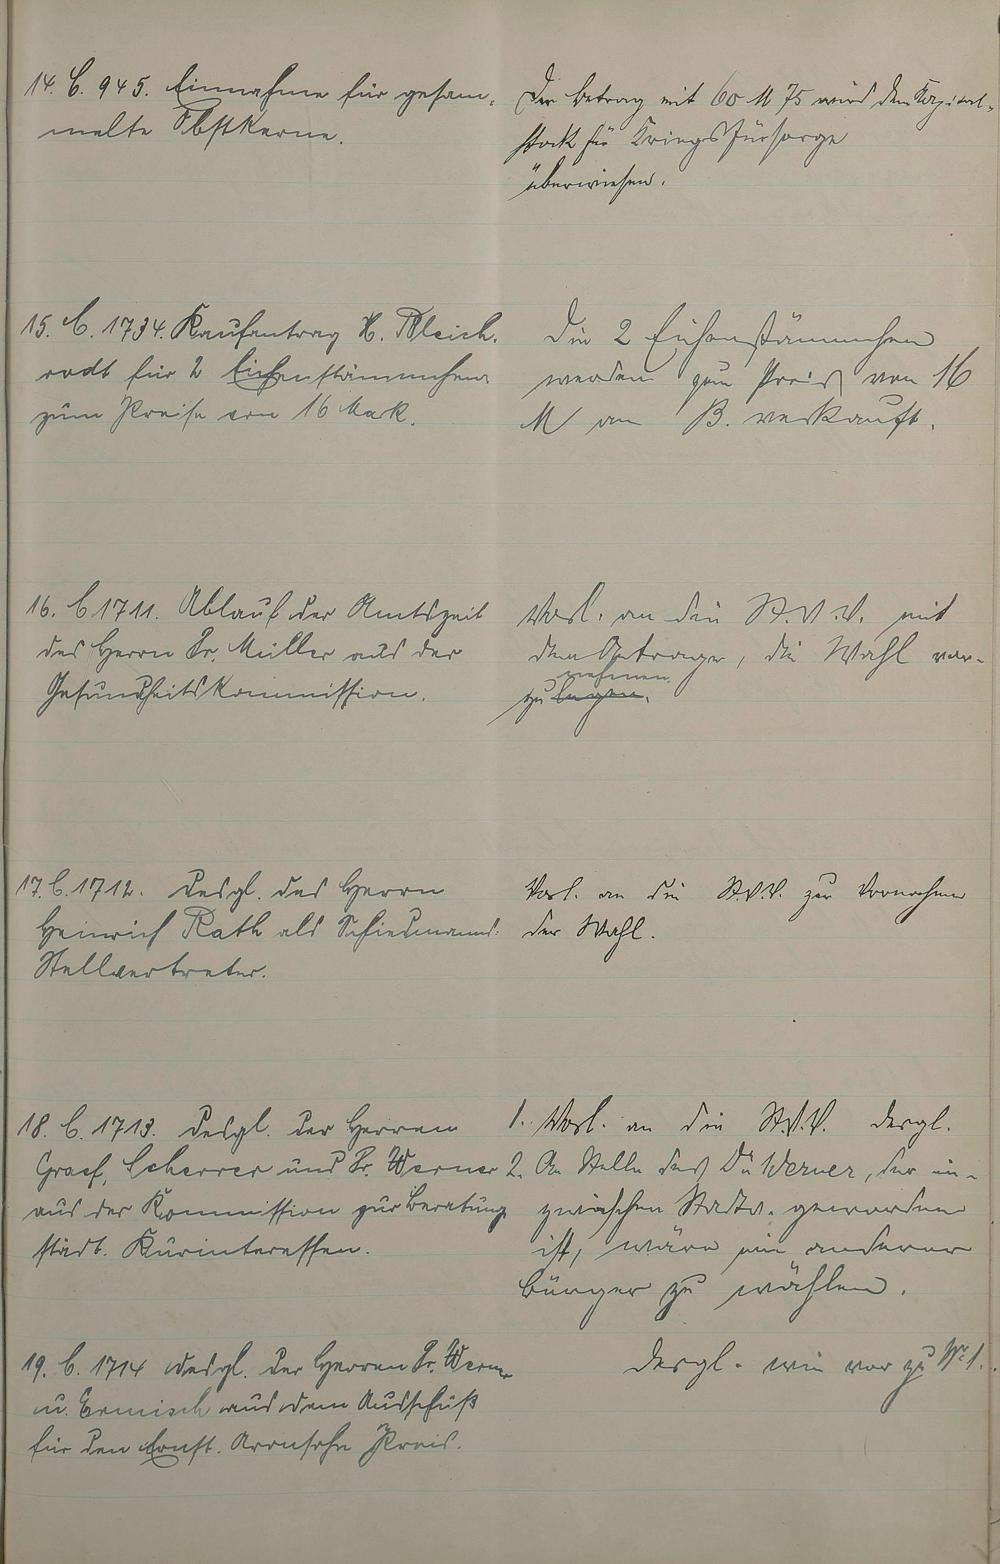 14. C. 945. Einnahme für gesam-
melte Obstkerne.
Der Betrag mit 60 M 75 wird dem Kapital-
stock für Kriegsfürsorge
überwiesen.
15. C. 1734. Kaufantrag H. Bleich-
rodt für 2 Eichenstämmchen
zum Preise von 16 Mark.
Die 2 Eichenstämmchen
werden zum Preis von 16
M an B. verkauft.
16. C. 1711. Ablauf der Amtszeit
des Herrn Dr. Müller aus der
Gesundheitskommission.
Vorl. an die St.V.V. mit
dem Antrage, die Wahl vor-
nehmen
zu legen.
17. C. 1712. Desgl. des Herrn
Heinrich Rath als Schiedsmanns-
Stellvertreter.
Vorl. an die St.V.V. zur Vornahme
der Wahl.
18. C. 1713. Desgl. der Herren
Graef, Scherrer und Dr. Werner
aus der Kommission zur Beratung
städt. Kurinteressen.
1. Vorl. an die St.V.V. desgl.
2. An Stelle des Dr. Werner, der in-
zwischen Stadtv. geworden
ist, wäre ein anderer
Bürger zu wählen.
19. C. 1714 desgl. der Herren Dr. Werner
u. Ermisch aus dem Ausschuß
für den Ernst. Aronsohn Preis.
desgl. wie vor zu Nr. 1.